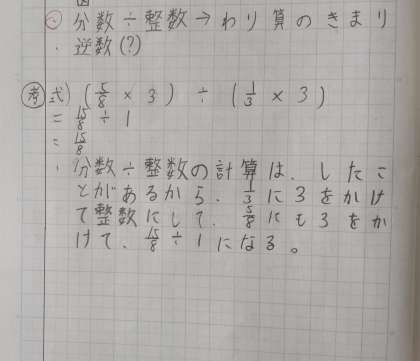 分数÷整数→わり算のきまり
・逆数(?)
考 式) (5/8 × 3) ÷ (1/3 × 3)
= 15/8 ÷ 1
= 15/8
・分数÷整数の計算は、したこ
とがあるから、1/3に3をかけ
て整数にして、5/8にも3をか
けて、15/8÷1になる。